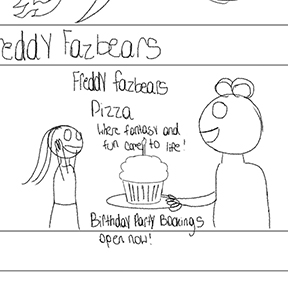 reddy Fazbears
Freddy fazbears
Pizza
Where fantasy and
fun come to life!
Birthday Party Bookings
open now!